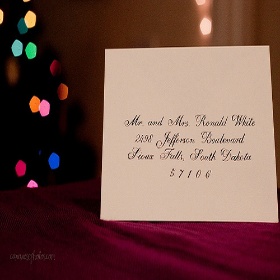 Mr. and Mrs. Ronald White
2498 Jefferson Boulevard
Sioux Falls, South Dakota
57106